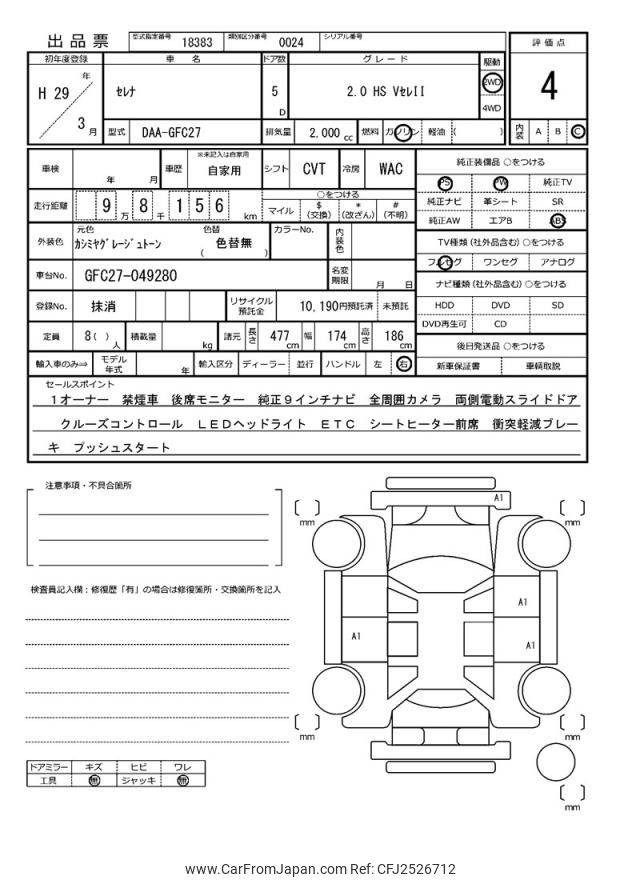 出品票 型式指定番号 18383 類別区分番号 0024 シリアル番号
評価点
4
初年度登録 車名 ドア数 グレード 駆動
H 29 年 3 月
セレナ
5 D
2.0 HS VセレII
2WD
4WD
型式 DAA-GFC27 排気量 2,000 cc 燃料 ガソリン 軽油 ( )
内装 A B C
車検 年 月 車歴 ※未記入は自家用 自家用 シフト CVT 冷房 WAC
純正装備品 ○をつける
PS PW 純正TV
走行距離 9 万 8 千 1 5 6 km
○をつける
マイル $ (交換) * (改ざん) # (不明)
純正ナビ 革シート SR
純正AW エアB ABS
外装色 元色 カシミヤグレージュトーン 色替 ( 色替無 ) カラーNo. 内装色
TV種類 (社外品含む) ○をつける
フルセグ ワンセグ アナログ
車台No. GFC27-049280 名変期限 月 日
ナビ種類 (社外品含む) ○をつける
登録No. 抹消 リサイクル預託金 10,190円預託済 未預託
HDD DVD SD
DVD再生可 CD
定員 8( ) 人 積載量 kg 諸元 長さ 477 cm 幅 174 cm 高さ 186 cm
後日発送品 ○をつける
輸入車のみ⇒ モデル年式 年 輸入区分 ディーラー 並行 ハンドル 左 右
新車保証書 車輌取説
セールスポイント
1オーナー 禁煙車 後席モニター 純正9インチナビ 全周囲カメラ 両側電動スライドドア
クルーズコントロール LEDヘッドライト ETC シートヒーター前席 衝突軽減ブレー
キ プッシュスタート
注意事項・不具合箇所
A1
mm
mm
検査員記入欄:修復歴「有」の場合は修復箇所・交換箇所を記入
A1
A1
A1
mm
mm
ドアミラー キズ ヒビ ワレ
工具 無 ジャッキ 無
mm
www.CarFromJapan.com Ref: CFJ2526712